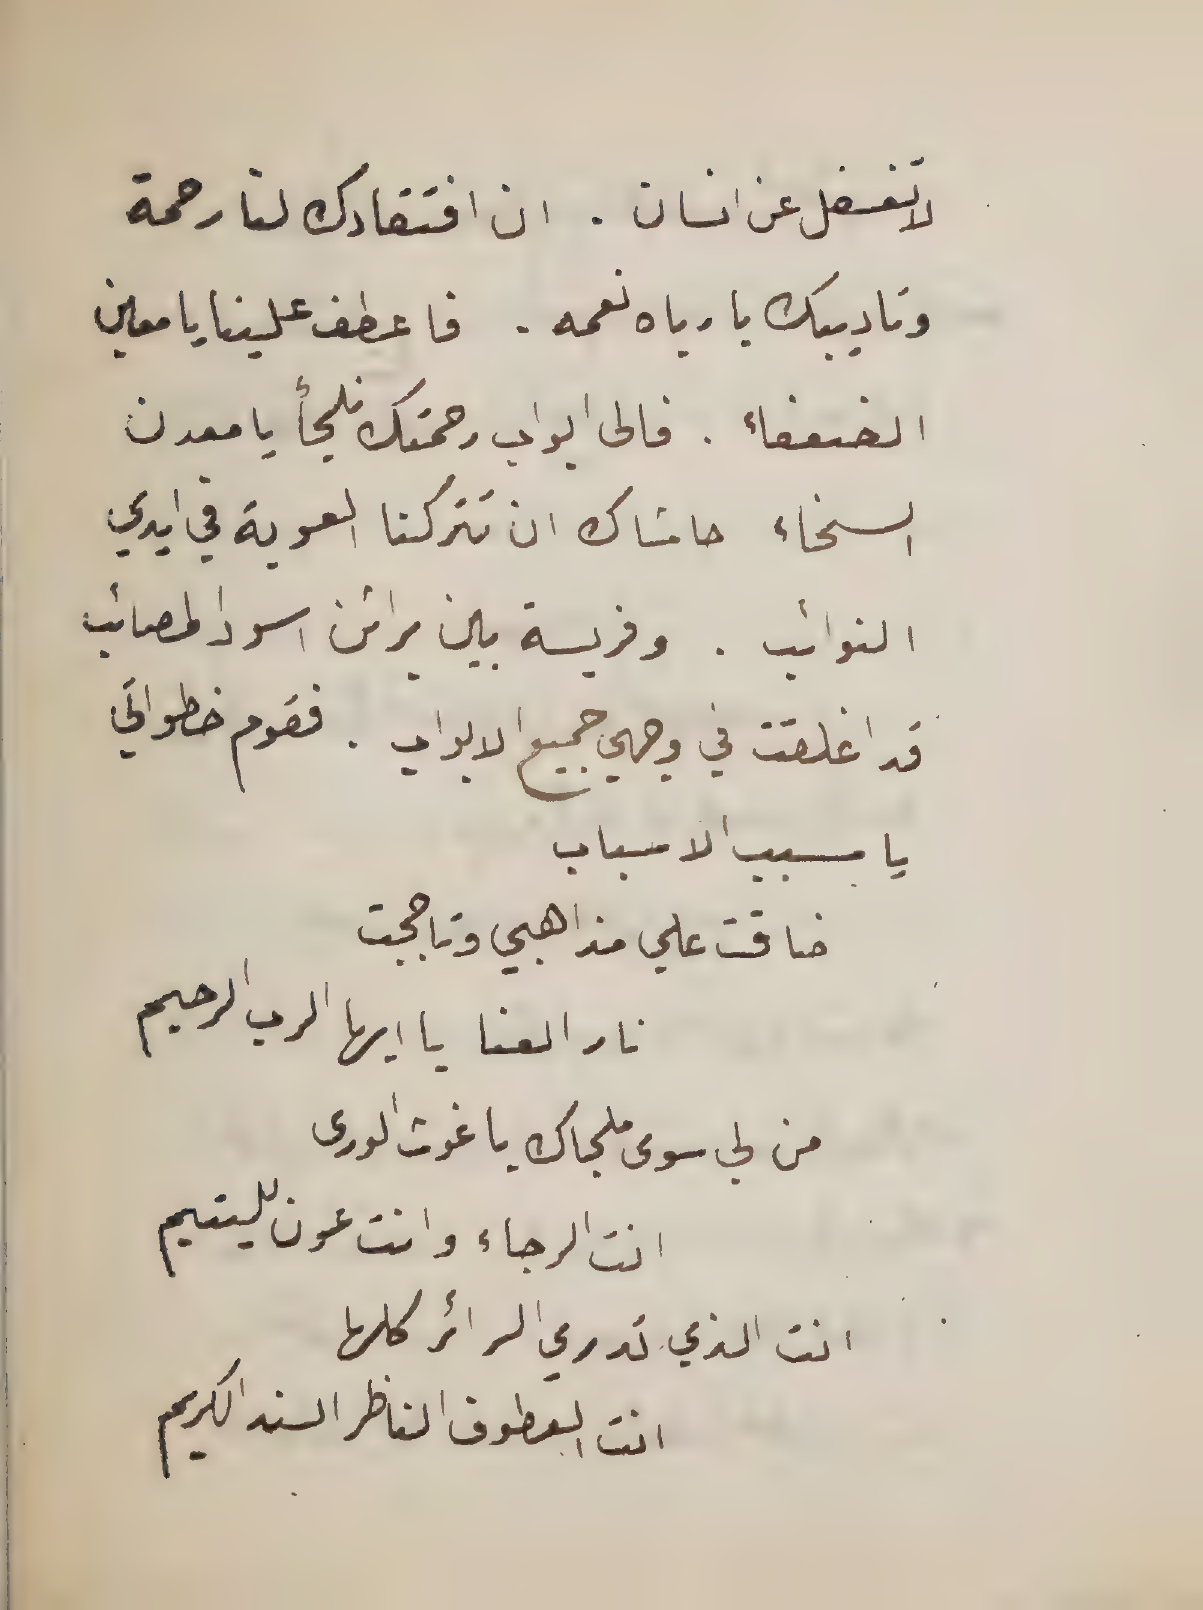 لا تغفل عن انسان . ان افتقادك لنا رحمة
وتاديبك يا رباه نعمه . فاعطف علينا يا معين
الضعفاء . فالى ابواب رحمتك نلجأ يا معدن
السخاء حاشاك ان تتركنا العوبة في ايدي
النوائب . وفريسة بين براثن اسود المصائب
قد اغلقت في وجهي جميع الابواب . فقوم خطواتي
يا مسبب الاسباب
ضاقت علي مذاهبي وتاججت
نار العنا يا ايها الرب الرحيم
من لي سوى ملجاك يا غوث الورى
انت الرجاء وانت عون لليتيم
انت الذي تدري السرائر كلها
انت العطوف الناظر السند الكريم